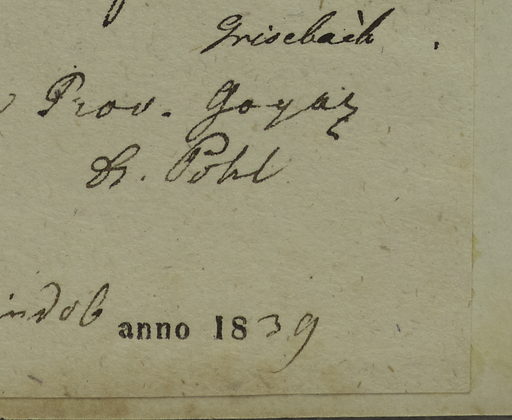 Grisebach.
Prov. Goyaz
Dr. Pohl
indob anno 1839